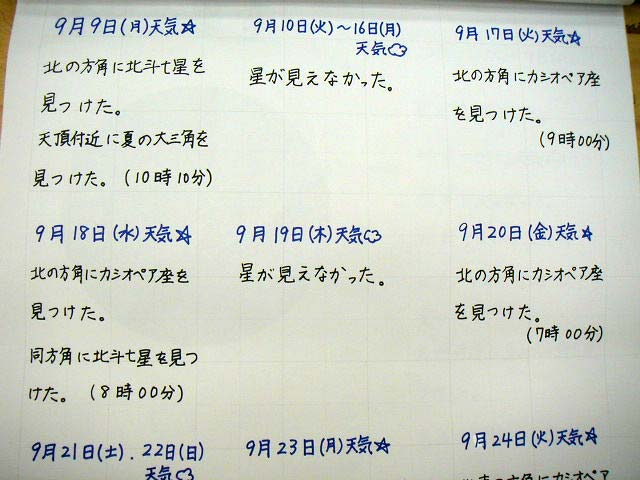 9月9日(月)天気☆
北の方角に北斗七星を
見つけた。
天頂付近に夏の大三角を
見つけた。(10時10分)
9月10日(火)~16日(月)
天気☁
星が見えなかった。
9月17日(火)天気☆
北の方角にカシオペア座
を見つけた。
(9時00分)
9月18日(水)天気☆
北の方角にカシオペア座を
見つけた。
同方角に北斗七星を見つ
けた。(8時00分)
9月19日(木)天気☁
星が見えなかった。
9月20日(金)天気☆
北の方角にカシオペア座
を見つけた。
(7時00分)
9月21日(土).22日(日)
天気☁
9月23日(月)天気☆
9月24日(火)天気☆
の方角にカシオペア